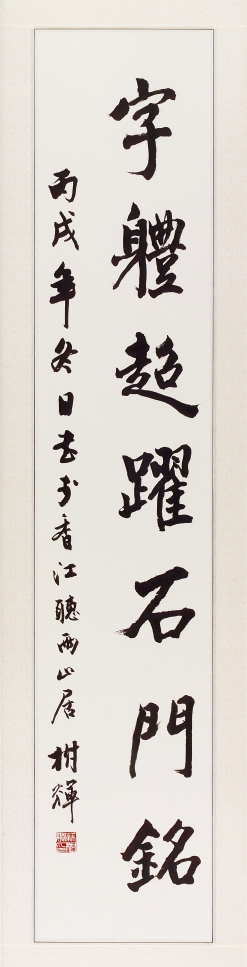 字軆超躍石門銘
丙戌年冬日書於香江聽雨山居 樹輝